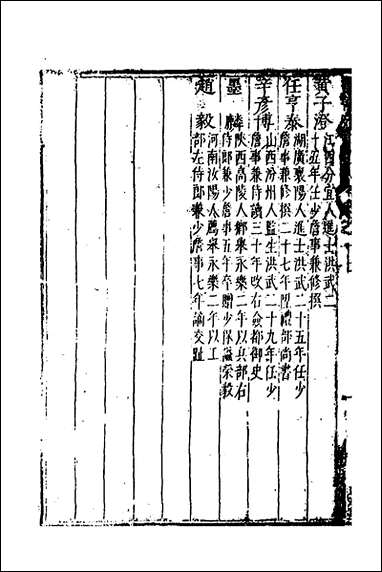 黃子澄 江西分宜人進士洪武二
十五年任少詹事兼修撰
任亨泰 湖廣襄陽人進士洪武二十五年任少
詹事兼修撰二十七年陞禮部尚書
辛彥博 山西汾州人監生洪武二十九年任少
詹事兼侍讀三十年改右僉都御史
墨麟 陝西高陵人鄉舉永樂二年以兵部右
侍郎兼少詹事五年卒贈少保謚榮毅
趙毅 河南汝陽人薦舉永樂二年以工
部左侍郎兼少詹事七年謫交趾